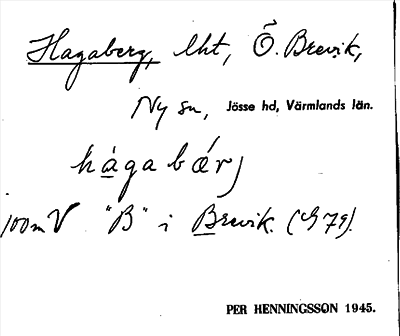 Hagaberg, lht, Ö. Brevik,
Ny sn, Jösse hd, Värmlands län.
hàgabǽrj
100 m V "B" i Brevik. (G 79).
PER HENNINGSSON 1945.